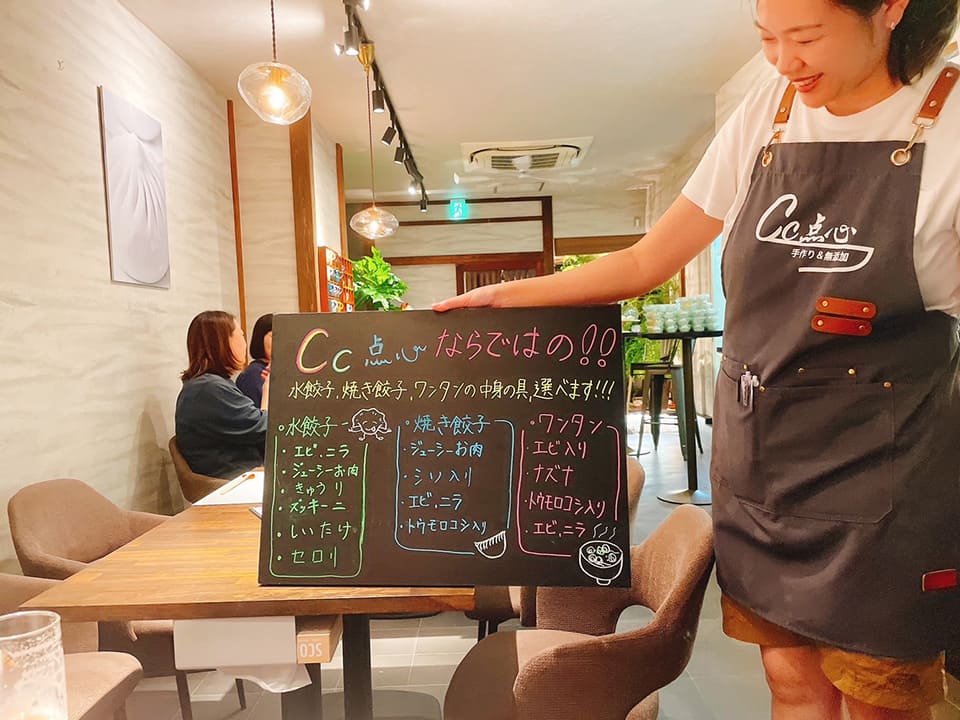 Cc点心ならではの!!
水餃子,焼き餃子,ワンタンの中身の具,選べます!!!
○水餃子
・エビ,ニラ
・ジューシーお肉
・きゅうり
・ズッキーニ
・しいたけ
・セロリ
○焼き餃子
・ジューシーお肉
・シソ入り
・エビ,ニラ
・トウモロコシ入り
○ワンタン
・エビ入り
・ナズナ
・トウモロコシ入り
・エビ,ニラ
Cc点心
手作り&無添加
SCO